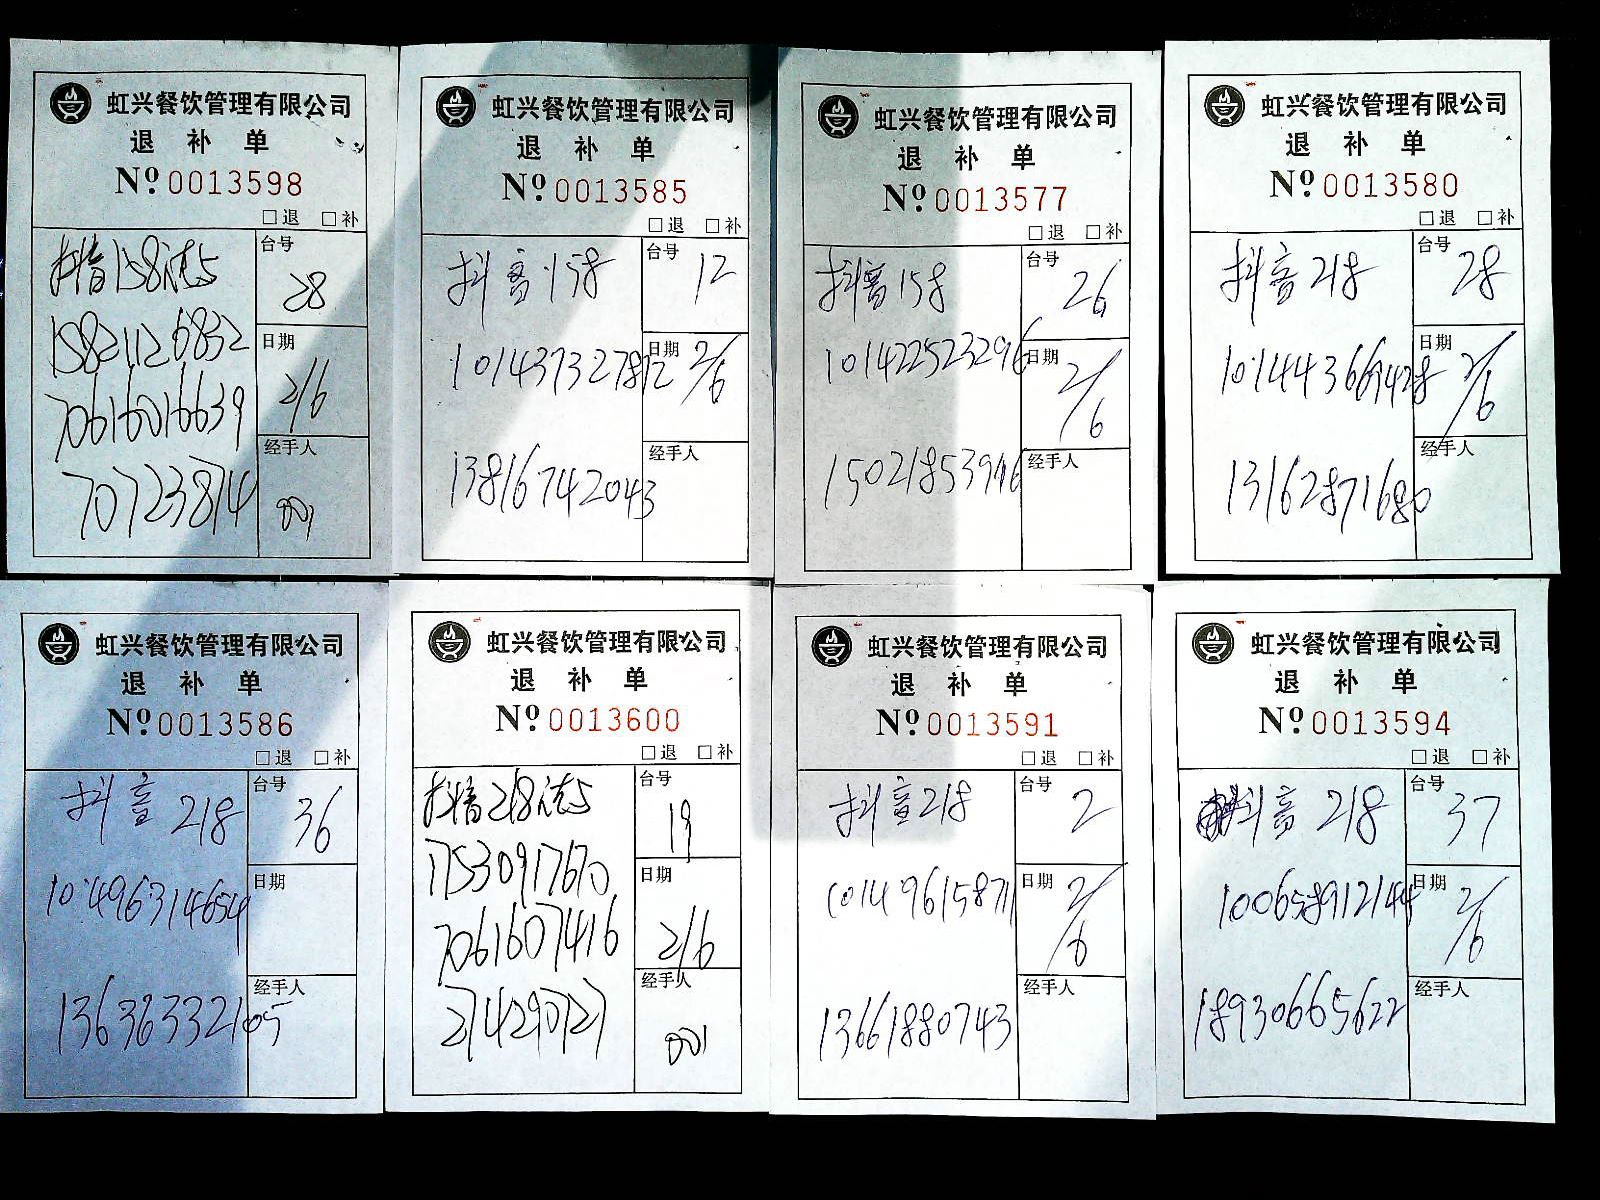 虹兴餐饮管理有限公司
退 补 单
Nº 0013598
□退 □补
抖音158套5
台号
28
15821126832
日期
2/6
70616016639
经手人
70723874
001
虹兴餐饮管理有限公司
退 补 单
Nº 0013585
□退 □补
抖音158
台号
12
101437327872
日期
2/6
13816742043
经手人
虹兴餐饮管理有限公司
退 补 单
Nº 0013577
□退 □补
抖音158
台号
26
101422523296
日期
2/6
经手人
虹兴餐饮管理有限公司
退 补 单
Nº 0013580
□退 □补
抖音218
台号
28
日期
2/6
13162871680
经手人
虹兴餐饮管理有限公司
退 补 单
Nº 0013586
□退 □补
抖音 218
台号
36
日期
13636332105
经手人
虹兴餐饮管理有限公司
退 补 单
Nº 0013600
□退 □补
抖音218套5
台号
19
17530917670
日期
2/6
7061607416
经手人
274290727
001
虹兴餐饮管理有限公司
退 补 单
Nº 0013591
□退 □补
抖音218
台号
2
101496158711
日期
2/6
13661880743
经手人
虹兴餐饮管理有限公司
退 补 单
Nº 0013594
□退 □补
抖音 218
台号
37
100658912144
日期
2/6
18930665622
经手人